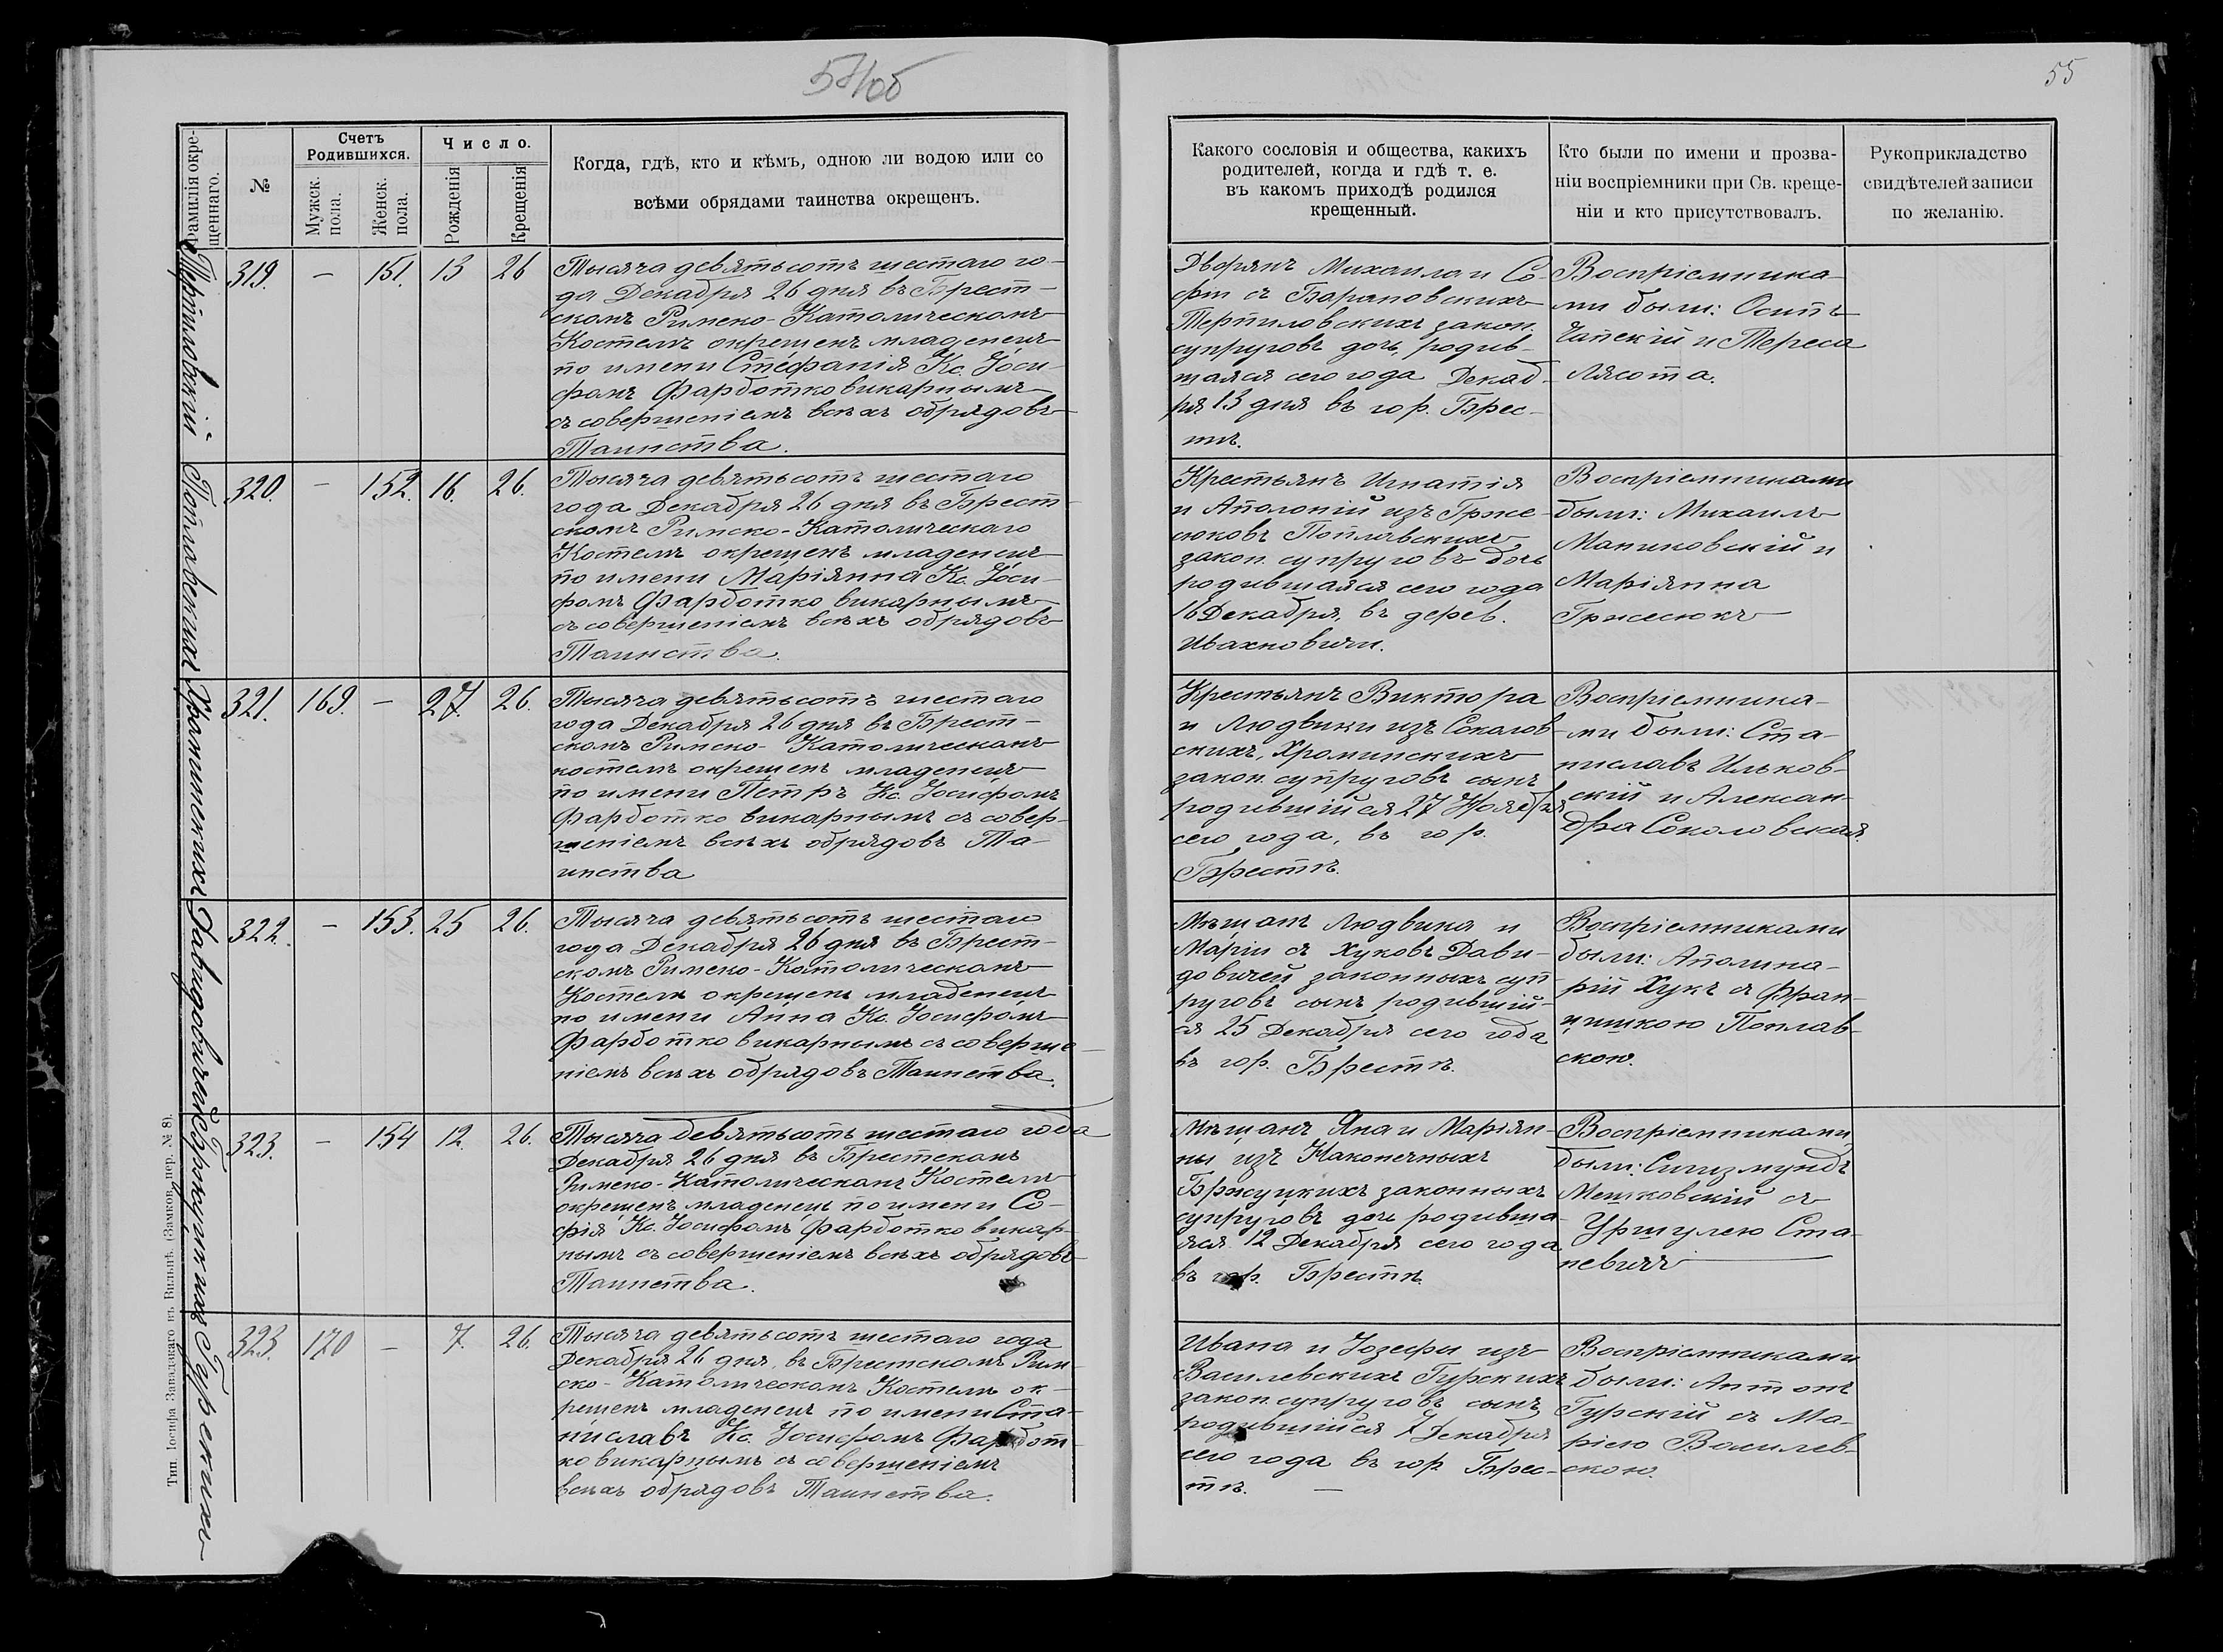 54об
55
Фамилія окре-
щеннаго.
№
Счетъ
Родившихся.
Мужск.
пола.
Женск.
пола.
Число.
Рожденія
Крещенія
Когда, гдѣ, кто и кѣмъ, одною ли водою или со
всѣми обрядами таинства окрещенъ.
Какого сословія и общества, какихъ
родителей, когда и гдѣ т. е.
въ какомъ приходѣ родился
крещенный.
Кто были по имени и прозва-
ніи воспріемники при Св. креще-
ніи и кто присутствовалъ.
Рукоприкладство
свидѣтелей записи
по желанію.
Терпиловскій
319. — 151. 13 26
Тысяча девятьсотъ шестаго го-
да Декабря 26 дня въ Брест-
скомъ Римско-Католическомъ
Костелѣ окрещенъ младенецъ
по имени Стефанія Кс. Іоси-
фомъ Фарботко викарнымъ
съ совершеніемъ всѣхъ обрядовъ
Таинства.
Дворянъ Михаила и Со-
фіи съ Барановскихъ
Терпиловскихъ закон.
супруговъ дочь, родив-
шаяся сего года Декаб-
ря 13 дня въ гор. Брес-
тѣ.
Воспріемника-
ми были: Осипъ
Чапскій и Тереса
Лясота.
Поплавскихъ
320. — 152. 16. 26.
Тысяча девятьсотъ шестаго
года Декабря 26 дня въ Брест-
скомъ Римско-Католическаго
Костелѣ окрещенъ младенецъ
по имени Маріянна Кс. Іоси-
фомъ Фарботко викарнымъ
съ совершеніемъ всѣхъ обрядовъ
Таинства.
Крестьянъ Игнатія
и Аполоній изъ Грже-
сюковъ Поплавскихъ
закон. супруговъ дочь
родившаяся сего года
16 Декабря, въ дерев.
Ивахновичи.
Воспріемниками
были: Михаилъ
Маниковскій и
Маріянна
Гржесюкъ
Хроминскихъ
321. 169. — 27. 26.
Тысяча девятьсотъ шестаго
года Декабря 26 дня въ Брест-
скомъ Римско-Католическомъ
костелѣ окрещенъ младенецъ
по имени Петръ Кс. Іосифомъ
Фарботко викарнымъ съ совер-
шеніемъ всѣхъ обрядовъ Та-
инства
Крестьянъ Виктора
и Людвики изъ Соколов-
скихъ, Хроминскихъ
закон. супруговъ сынъ
родившійся 27 Ноября
сего года, въ гор.
Брестѣ.
Воспріемника-
ми были: Ста-
ниславъ Ильков-
скій и Алексан-
дра Соколовская.
Давидовичей
322. — 153. 25 26.
Тысяча девятьсотъ шестаго
года Декабря 26 дня въ Брест-
скомъ Римско-Католическомъ
Костелѣ окрещенъ младенецъ
по имени Анна Кс. Іосифомъ
Фарботко викарнымъ съ соверше-
ніемъ всѣхъ обрядовъ Таинства.
Мѣщанъ Людвика и
Маріи съ Хуковъ Дави-
довичей законныхъ суп-
руговъ сынъ родившій-
ся 25 Декабря сего года
въ гор. Брестѣ.
Воспріемниками
были: Аполина-
рій Хукъ съ Фран-
цишкою Поплав-
скою.
Бржуцкихъ
323. — 154 12. 26.
Тысяча девятьсотъ шестаго года
Декабря 26 дня въ Брестскомъ
Римско-Католическомъ Костелѣ
окрещенъ младенецъ по имени Со-
фія Кс. Іосифомъ Фарботко викар-
нымъ съ совершеніемъ всѣхъ обрядовъ
Таинства.
Мѣщанъ Яна и Маріян-
ны изъ Наконечныхъ
Бржуцкихъ законныхъ
супруговъ дочь родивша-
яся 12 Декабря сего года
въ гор. Брестѣ.
Воспріемниками
были: Сигизмундъ
Мешковскій съ
Уршулею Ста-
невичъ
Гурскихъ
323. 170 — 7. 26.
Тысяча девятьсотъ шестаго года
Декабря 26 дня, въ Брестскомъ Рим-
ско-Католическомъ Костелѣ ок-
рещенъ младенецъ по имени Ста-
ниславъ Кс. Іосифомъ Фарбот-
ко викарнымъ съ совершеніемъ
всѣхъ обрядовъ Таинства.
Ивана и Іозефы изъ
Василевскихъ Гурскихъ
закон. супруговъ сынъ
родившійся 7 Декабря
сего года въ гор. Брес-
тѣ. —
Воспріемниками
были: Антонъ
Гурскій съ Ма-
ріею Василев-
скою.
Тип. Іосифа Завадзкаго въ Вильнѣ. (Замков. пер. № 8).